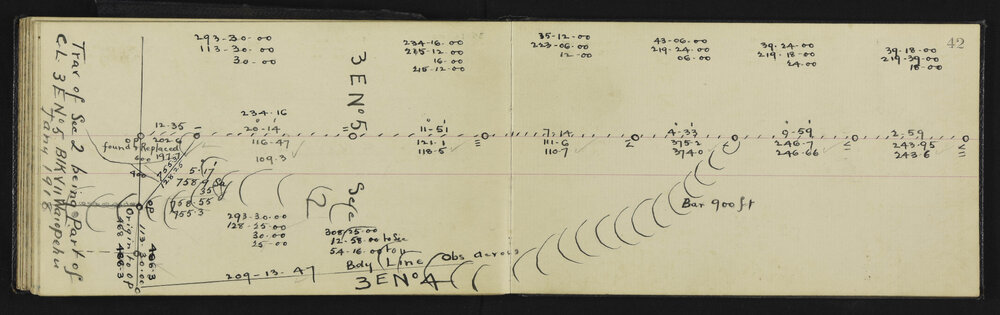 Trav of Sec 2 being Part of
C.L. 3 E No 5 Blk VII Waiopehu
Jany 1918
42
293-30-00
113-30-00
30-00
234-16-00
215-12-00
16-00
215-12-00
35-12-00
223-06-00
12-00
43-06-00
219-24-00
06-00
39-24-00
219-18-00
24-00
39-18-00
219-39-00
18-00
3 E No 5
234-16
20-14
116-47
109-3
12-35
202-6
197-57
OP
found & Replaced
600
400
753
128.25
11-51
121-1
118-5
7-14
111-6
110-7
4-33
375-2
374-0
9-59
246-7
246-66
2-59
243-95
243-6
5-17
758-9
35
758-55
755-3
Sec
2
293-30-00
128-25-00
30-00
25-00
308/25-00
12-58-00 to Sec
54-16-00 to
Bdy Line Obs across
3 E No 4
209-13-47
Bar 900ft
OP
Origin to OP
113-30-00
466-3
468
466-3